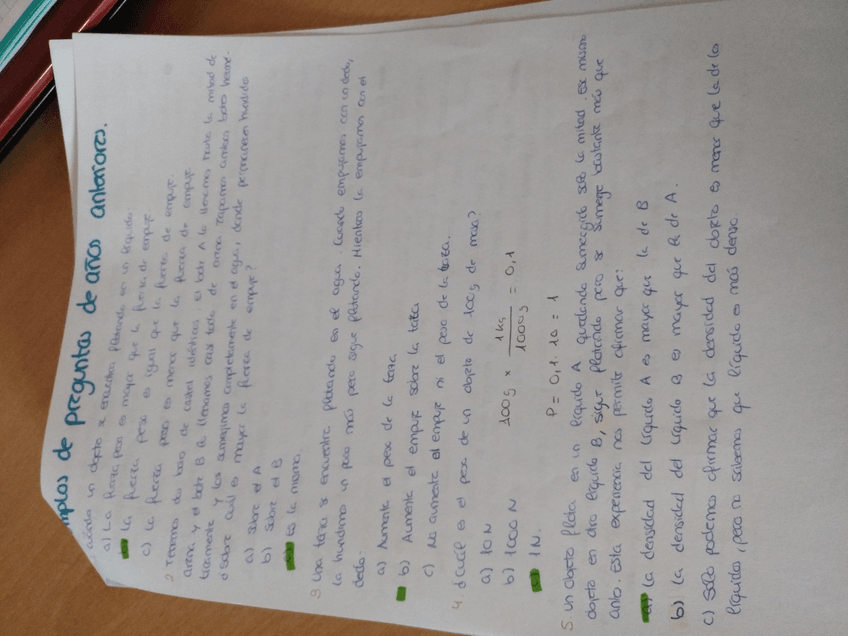 mplos de preguntas de años anteriores.
uando un objeto se encuentra flotando en un líquido
a) La fuerza peso es mayor que la fuerza de empuje
b) La fuerza peso es igual que la fuerza de empuje.
c) La fuerza peso es menor que la fuerza de empuje.
2 Tenemos dos botes de cristal idénticos. El bote A lo llenamos hasta la mitad de
arena y el bote B lo llenamos casi todo de arena. Tapamos ambos botes hermé-
ticamente y los sumergimos completamente en el agua, donde permanecen hundidos
¿Sobre cuál es mayor la fuerza de empuje?
a) Sobre el A
b) Sobre el B
Es la misma.
3 Una tabla se encuentra flotando en el agua. Cuando empujamos con un dedo,
la hundimos un poco más pero sigue flotando. Mientras la empujamos con el
dedo.
a) Aumenta el peso de la tabla
b) Aumenta el empuje sobre la tabla
c) No aumenta el empuje ni el peso de la tabla.
4. ¿Cuál es el peso de un objeto de 100g de masa?
a) 10 N
b) 1000 N
c) 1 N.
100g × 1kg / 1000g = 0,1
P = 0,1 · 10 = 1
5 Un objeto flota en un líquido A quedando sumergido solo la mitad. Ese mismo
objeto en otro líquido B, sigue flotando pero se sumerge bastante más que
antes. Esta experiencia nos permite afirmar que:
a) La densidad del líquido A es mayor que la de B
b) La densidad del líquido B es mayor que la de A.
c) Sólo podemos afirmar que la densidad del objeto es menor que la de los
líquidos, pero no sabemos que líquido es más denso.